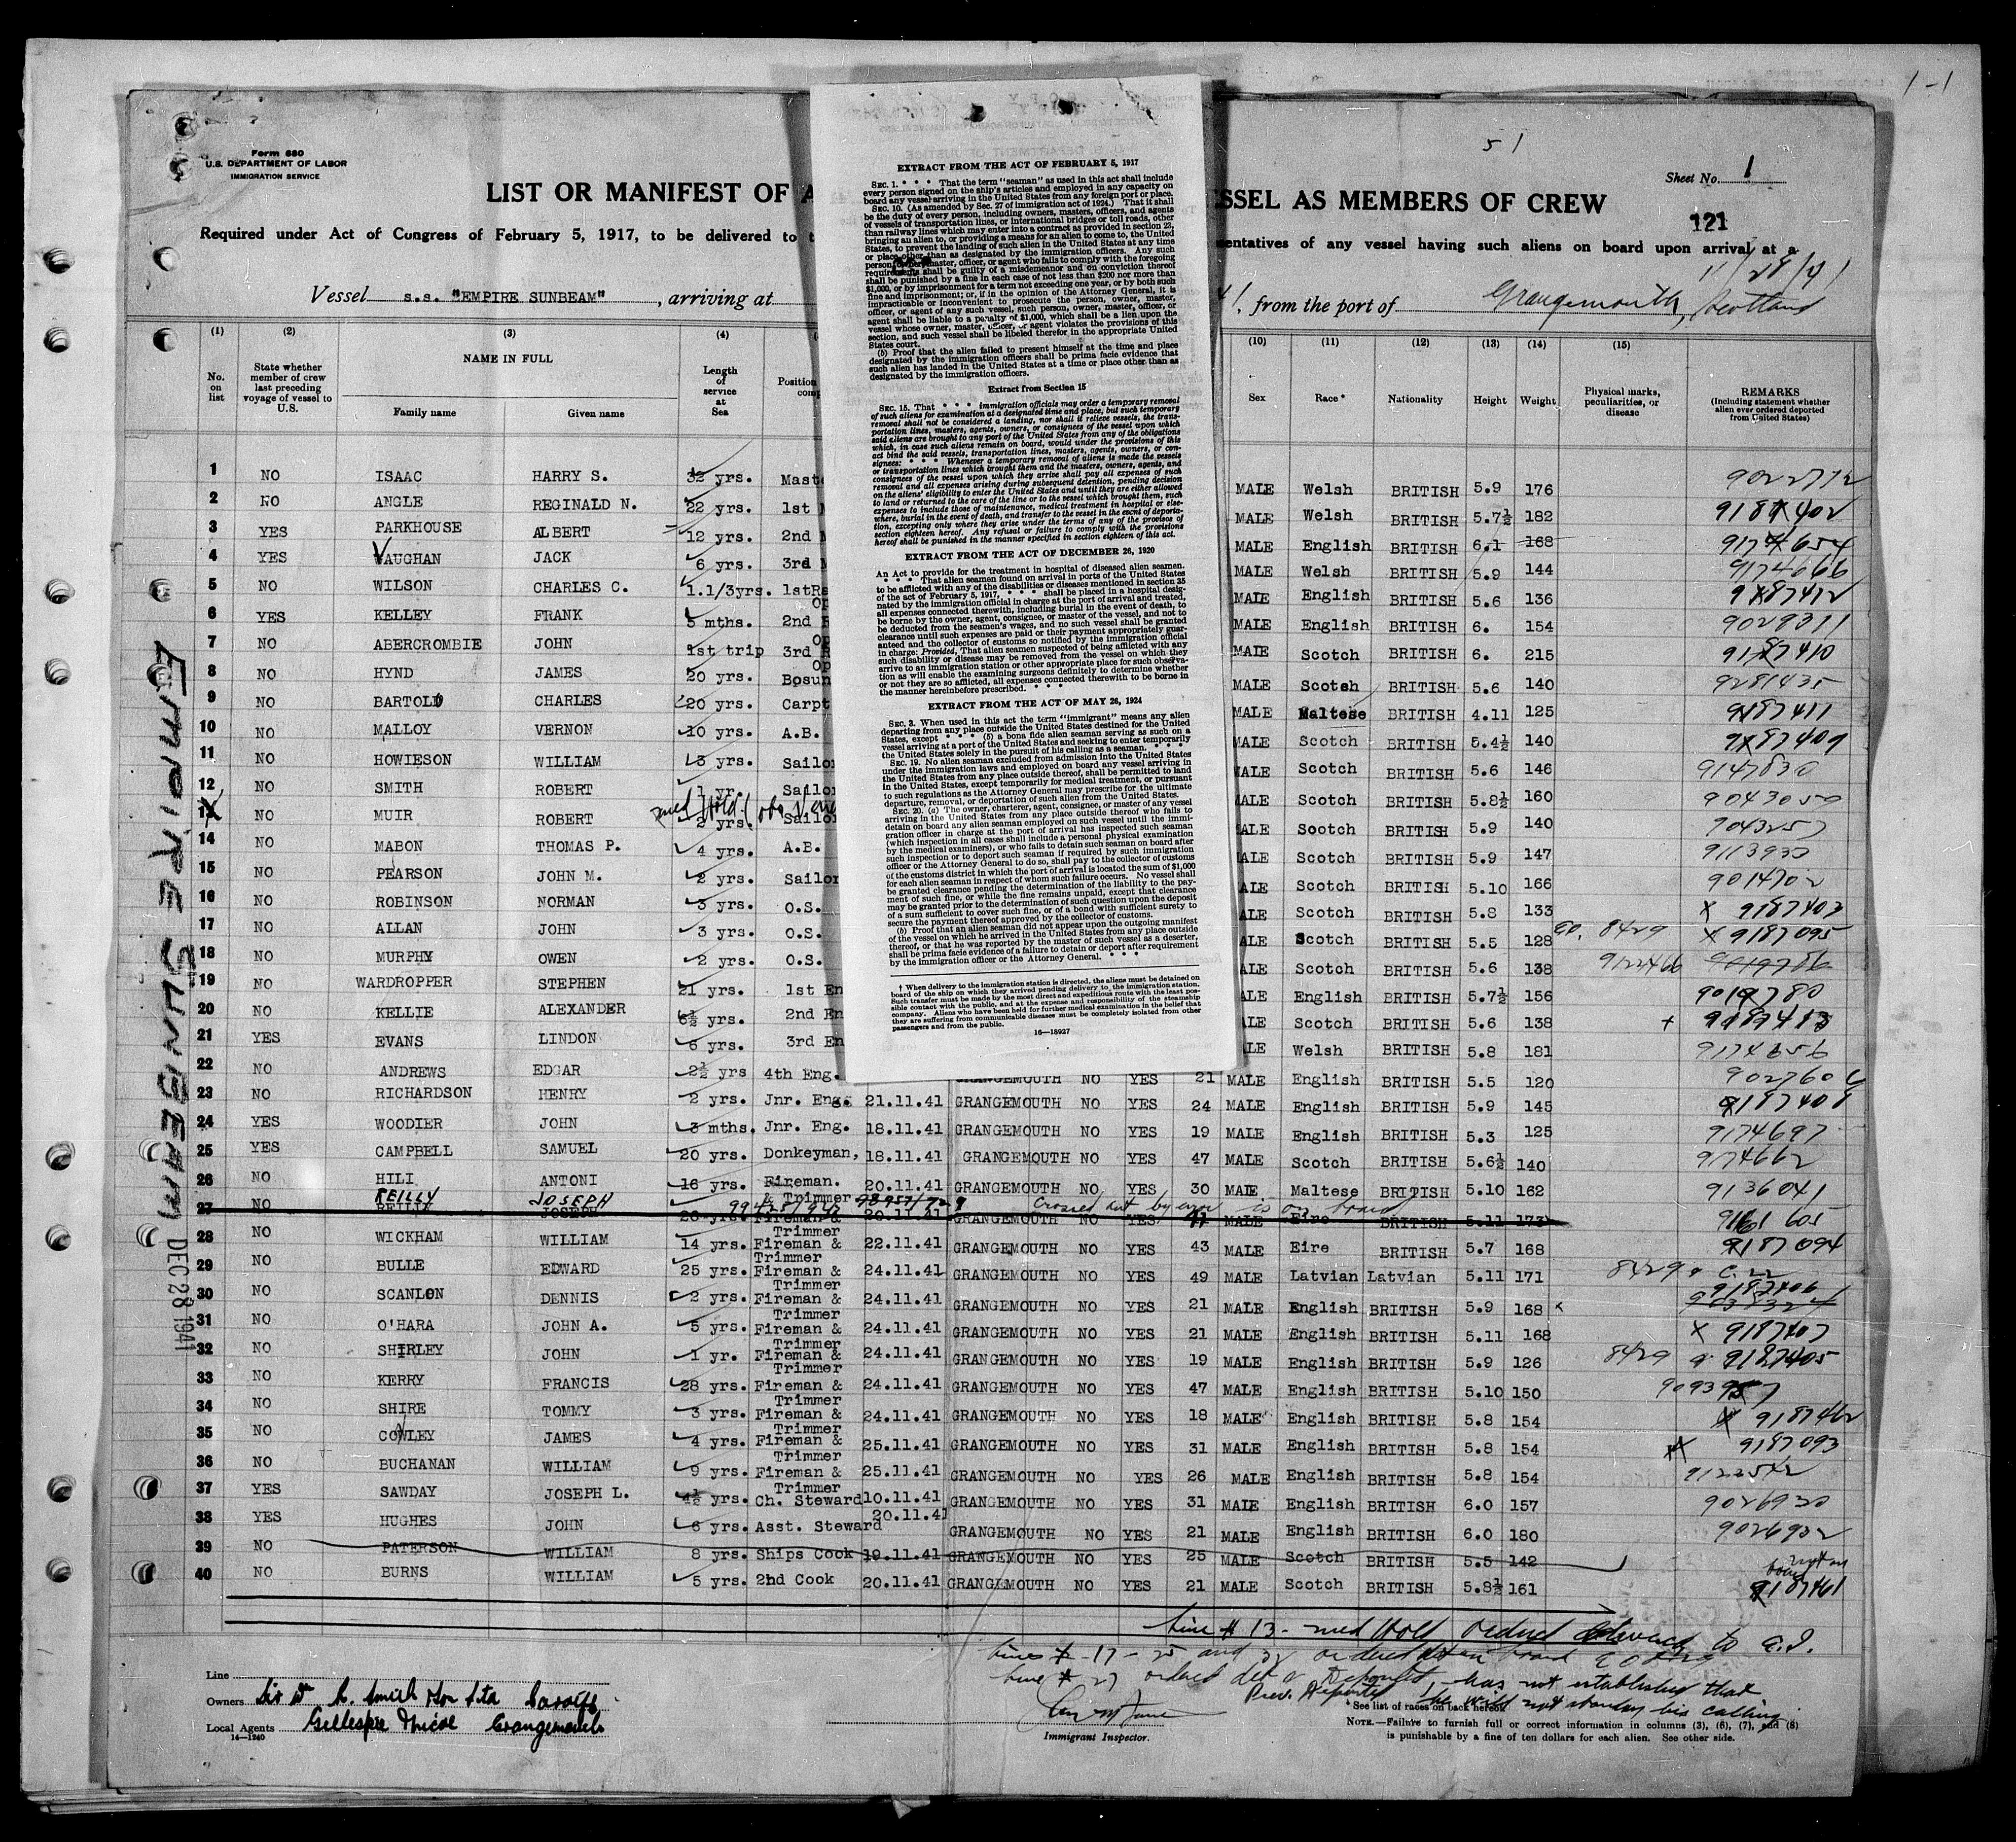 1-1
51
Form 680
U.S. DEPARTMENT OF LABOR
IMMIGRATION SERVICE
Sheet No. 1
LIST OR MANIFEST OF A
SSEL AS MEMBERS OF CREW
121
Required under Act of Congress of February 5, 1917, to be delivered to t
entatives of any vessel having such aliens on board upon arrival at a
11/28/41
Vessel s.s. "EMPIRE SUNBEAM", arriving at
, from the port of Grangemouth, Scotland
(1) (2) (3) (4)
(10) (11) (12) (13) (14) (15)
No. on list
State whether member of crew last preceding voyage of vessel to U.S.
NAME IN FULL
Family name Given name
Length of service at Sea
Position
Sex Race* Nationality Height Weight
Physical marks, peculiarities, or disease
REMARKS
(Including statement whether alien ever ordered deported from United States)
1 NO ISAAC HARRY S. 32 yrs. Mast MALE Welsh BRITISH 5.9 176 9022712
2 NO ANGLE REGINALD N. 22 yrs. 1st MALE Welsh BRITISH 5.7½ 182 9187402
3 YES PARKHOUSE ALBERT 12 yrs. 2nd MALE English BRITISH 6.1 168 9174654
4 YES VAUGHAN JACK 6 yrs. 3rd MALE Welsh BRITISH 5.9 144 9174666
5 NO WILSON CHARLES C. 1.1/3yrs. 1stR MALE English BRITISH 5.6 136 9187412
6 YES KELLEY FRANK 5 mths. 2nd MALE English BRITISH 6. 154 9029311
7 NO ABERCROMBIE JOHN 1st trip 3rd MALE Scotch BRITISH 6. 215 9187410
8 NO HYND JAMES 20 yrs. Bosun MALE Scotch BRITISH 5.6 140 9281435
9 NO BARTOLO CHARLES 20 yrs. Carpt MALE Maltese BRITISH 4.11 125 9187411
10 NO MALLOY VERNON 10 yrs. A.B. MALE Scotch BRITISH 5.4½ 140 9187409
11 NO HOWIESON WILLIAM 3 yrs. Sailo MALE Scotch BRITISH 5.6 146 9147830
12 NO SMITH ROBERT 1 yr. Sailo MALE Scotch BRITISH 5.8½ 160 9043050
13 NO MUIR ROBERT med Hold 2 yrs. Sailo MALE Scotch BRITISH 5.9 140 9043257
14 NO MABON THOMAS P. 4 yrs. A.B. ALE Scotch BRITISH 5.9 147 9113930
15 NO PEARSON JOHN M. 2 yrs. Sailor ALE Scotch BRITISH 5.10 166 9014702
16 NO ROBINSON NORMAN 3 yrs. O.S. ALE Scotch BRITISH 5.8 133 x 9187403
17 NO ALLAN JOHN 3 yrs. O.S. ALE Scotch BRITISH 5.5 128 8429 x 9187095
18 NO MURPHY OWEN 2 yrs. O.S. ALE Scotch BRITISH 5.6 138 9122466
19 NO WARDROPPER STEPHEN 21 yrs. 1st En ALE English BRITISH 5.7½ 156 9019780
20 NO KELLIE ALEXANDER 6½ yrs. 2nd En ALE Scotch BRITISH 5.6 138
21 YES EVANS LINDON 6 yrs. 3rd En LE Welsh BRITISH 5.8 181 9174656
22 NO ANDREWS EDGAR 2½ yrs 4th Eng. GRANGEMOUTH NO YES 21 MALE English BRITISH 5.5 120 9027606
23 NO RICHARDSON HENRY 2 yrs. Jnr. Eng. 21.11.41 GRANGEMOUTH NO YES 24 MALE English BRITISH 5.9 145 9187408
24 YES WOODIER JOHN 3 mths. Jnr. Eng. 18.11.41 GRANGEMOUTH NO YES 19 MALE English BRITISH 5.3 125 9174697
25 YES CAMPBELL SAMUEL 20 yrs. Donkeyman, 18.11.41 GRANGEMOUTH NO YES 47 MALE Scotch BRITISH 5.6½ 140 9174662
26 NO HILI ANTONI 16 yrs. Fireman. & Trimmer 20.11.41 GRANGEMOUTH NO YES 30 MALE Maltese BRITISH 5.10 162 9136041
27 NO REILLY JOSEPH Fireman & Trimmer 20.11.41 GRANGEMOUTH NO YES MALE Eire BRITISH 5.11 173 9161605
Crossed out by error is on board
28 NO WICKHAM WILLIAM 14 yrs. Fireman & Trimmer 22.11.41 GRANGEMOUTH NO YES 43 MALE Eire BRITISH 5.7 168 9187094
29 NO BULLE EDWARD 25 yrs. Fireman & Trimmer 24.11.41 GRANGEMOUTH NO YES 49 MALE Latvian Latvian 5.11 171 8429
30 NO SCANLON DENNIS 2 yrs. Fireman & Trimmer 24.11.41 GRANGEMOUTH NO YES 21 MALE English BRITISH 5.9 168 x 9187406
31 NO O'HARA JOHN A. 5 yrs. Fireman & Trimmer 24.11.41 GRANGEMOUTH NO YES 21 MALE English BRITISH 5.11 168 x 9187407
32 NO SHIRLEY JOHN 1 yr. Fireman & Trimmer 24.11.41 GRANGEMOUTH NO YES 19 MALE English BRITISH 5.9 126 8429 9187405
33 NO KERRY FRANCIS 28 yrs. Fireman & Trimmer 24.11.41 GRANGEMOUTH NO YES 47 MALE English BRITISH 5.10 150 9093957
34 NO SHIRE TOMMY 3 yrs. Fireman & Trimmer 24.11.41 GRANGEMOUTH NO YES 18 MALE English BRITISH 5.8 154 x 9187462
35 NO COWLEY JAMES 4 yrs. Fireman & Trimmer 25.11.41 GRANGEMOUTH NO YES 31 MALE English BRITISH 5.8 154 9187093
36 NO BUCHANAN WILLIAM 9 yrs. Fireman & Trimmer 25.11.41 GRANGEMOUTH NO YES 26 MALE English BRITISH 5.8 154 9122542
37 YES SAWDAY JOSEPH L. 4½ yrs. Ch. Steward 10.11.41 GRANGEMOUTH NO YES 31 MALE English BRITISH 6.0 157 9026930
38 YES HUGHES JOHN 6 yrs. Asst. Steward 20.11.41 GRANGEMOUTH NO YES 21 MALE English BRITISH 6.0 180 9026902
39 NO PATERSON WILLIAM 8 yrs. Ships Cook 19.11.41 GRANGEMOUTH NO YES 25 MALE Scotch BRITISH 5.5 142 not on board
40 NO BURNS WILLIAM 5 yrs. 2nd Cook 20.11.41 GRANGEMOUTH NO YES 21 MALE Scotch BRITISH 5.8½ 161 9187461
Line # 13 - med Hold ordered
Lines # 17 - 25 and 32 ordered on board
Line # 27 ordered det - has not established that
he will not abandon his calling
Line
Owners Sir Wm R. Smith & Son Ltd Cardiff
Local Agents Gillespie & Nicol Grangemouth
14-1240
Immigrant Inspector.
* See list of races on back hereof.
NOTE.—Failure to furnish full or correct information in columns (3), (6), (7), and (8)
is punishable by a fine of ten dollars for each alien. See other side.
EMPIRE SUNBEAM
DEC 28 1941
EXTRACT FROM THE ACT OF FEBRUARY 5, 1917
SEC. 1. * * * That the term "seaman" as used in this act shall include
every person signed on the ship's articles and employed in any capacity on
board any vessel arriving in the United States from any foreign port or place.
SEC. 10. (As amended by Sec. 27 of immigration act of 1924.) That it shall
be the duty of every person, including owners, masters, officers, and agents
of vessels of transportation lines, or international bridges or toll roads, other
than railway lines which may enter into a contract as provided in section 23,
bringing an alien to, or providing a means for an alien to come to, the United
States, to prevent the landing of such alien in the United States at any time
or place other than as designated by the immigration officers. Any such
person, owner, master, officer, or agent who fails to comply with the foregoing
requirements shall be guilty of a misdemeanor and on conviction thereof
shall be punished by a fine in each case of not less than $200 nor more than
$1,000, or by imprisonment for a term not exceeding one year, or by both such
fine and imprisonment; or, if in the opinion of the Attorney General, it is
impracticable or inconvenient to prosecute the person, owner, master,
officer, or agent of any such vessel, such person, owner, master, officer, or
agent shall be liable to a penalty of $1,000, which shall be a lien upon the
vessel whose owner, master, officer, or agent violates the provisions of this
section, and such vessel shall be libeled therefor in the appropriate United
States court.
(b) Proof that the alien failed to present himself at the time and place
designated by the immigration officers shall be prima facie evidence that
such alien has landed in the United States at a time or place other than as
designated by the immigration officers.
Extract from Section 15
SEC. 15. That * * * immigration officials may order a temporary removal
of such aliens for examination at a designated time and place, but such temporary
removal shall not be considered a landing, nor shall it relieve vessels, the trans-
portation lines, masters, agents, owners, or consignees of the vessel upon which
said aliens are brought to any port of the United States from any of the obligations
which, in case such aliens remain on board, would under the provisions of this
act bind the said vessels, transportation lines, masters, agents, owners, or con-
signees: * * * Whenever a temporary removal of aliens is made the vessels
or transportation lines which brought them and the masters, owners, agents, and
consignees of the vessel upon which they arrive shall pay all expenses of such
removal and all expenses arising during subsequent detention, pending decision
on the aliens' eligibility to enter the United States and until they are either allowed
to land or returned to the care of the line or to the vessel which brought them, such
expenses to include those of maintenance, medical treatment in hospital or else-
where, burial in the event of death, and transfer to the vessel in the event of deporta-
tion, excepting only where they arise under the terms of any of the provisos of
section eighteen hereof. Any refusal or failure to comply with the provisions
hereof shall be punished in the manner specified in section eighteen of this act.
EXTRACT FROM THE ACT OF DECEMBER 26, 1920
An Act to provide for the treatment in hospital of diseased alien seamen.
* * * That alien seamen found on arrival in ports of the United States
to be afflicted with any of the disabilities or diseases mentioned in section 35
of the act of February 5, 1917, * * * shall be placed in a hospital desig-
nated by the immigration official in charge at the port of arrival and treated,
all expenses connected therewith, including burial in the event of death, to
be borne by the owner, agent, consignee, or master of the vessel, and not to
be deducted from the seamen's wages, and no such vessel shall be granted
clearance until such expenses are paid or their payment appropriately guar-
anteed and the collector of customs so notified by the immigration official
in charge: Provided, That alien seamen suspected of being afflicted with any
such disability or disease may be removed from the vessel on which they
arrive to an immigration station or other appropriate place for such observa-
tion as will enable the examining surgeons definitely to determine whether
or not they are so afflicted, all expenses connected therewith to be borne in
the manner hereinbefore prescribed. * * *
EXTRACT FROM THE ACT OF MAY 26, 1924
SEC. 3. When used in this act the term "immigrant" means any alien
departing from any place outside the United States destined for the United
States, except * * * (5) a bona fide alien seaman serving as such on a
vessel arriving at a port of the United States and seeking to enter temporarily
the United States solely in the pursuit of his calling as a seaman. * * *
SEC. 19. No alien seaman excluded from admission into the United States
under the immigration laws and employed on board any vessel arriving in
the United States from any place outside thereof, shall be permitted to land
in the United States, except temporarily for medical treatment, or pursuant
to such regulations as the Attorney General may prescribe for the ultimate
departure, removal, or deportation of such alien from the United States.
SEC. 20. (a) The owner, charterer, agent, consignee, or master of any vessel
arriving in the United States from any place outside thereof who fails to
detain on board any alien seaman employed on such vessel until the immi-
gration officer in charge at the port of arrival has inspected such seaman
(which inspection in all cases shall include a personal physical examination
by the medical examiners), or who fails to detain such seaman on board after
such inspection or to deport such seaman if required by such immigration
officer or the Attorney General to do so, shall pay to the collector of customs
of the customs district in which the port of arrival is located the sum of $1,000
for each alien seaman in respect of whom such failure occurs. No vessel shall
be granted clearance pending the determination of the liability to the pay-
ment of such fine, or while the fine remains unpaid, except that clearance
may be granted prior to the determination of such question upon the deposit
of a sum sufficient to cover such fine, or of a bond with sufficient surety to
secure the payment thereof approved by the collector of customs.
(b) Proof that an alien seaman did not appear upon the outgoing manifest
of the vessel on which he arrived in the United States from any place outside
thereof, or that he was reported by the master of such vessel as a deserter,
shall be prima facie evidence of a failure to detain or deport after requirement
by the immigration officer or the Attorney General. * * *
† When delivery to the immigration station is directed, the aliens must be detained on
board of the ship on which they arrived pending delivery to the immigration station.
Such transfer must be made by the most direct and expeditious route with the least pos-
sible contact with the public, and at the expense and responsibility of the steamship
company. Aliens who have been held for further medical examination in the belief that
they are suffering from communicable diseases must be completely isolated from other
passengers and from the public.
16—18927